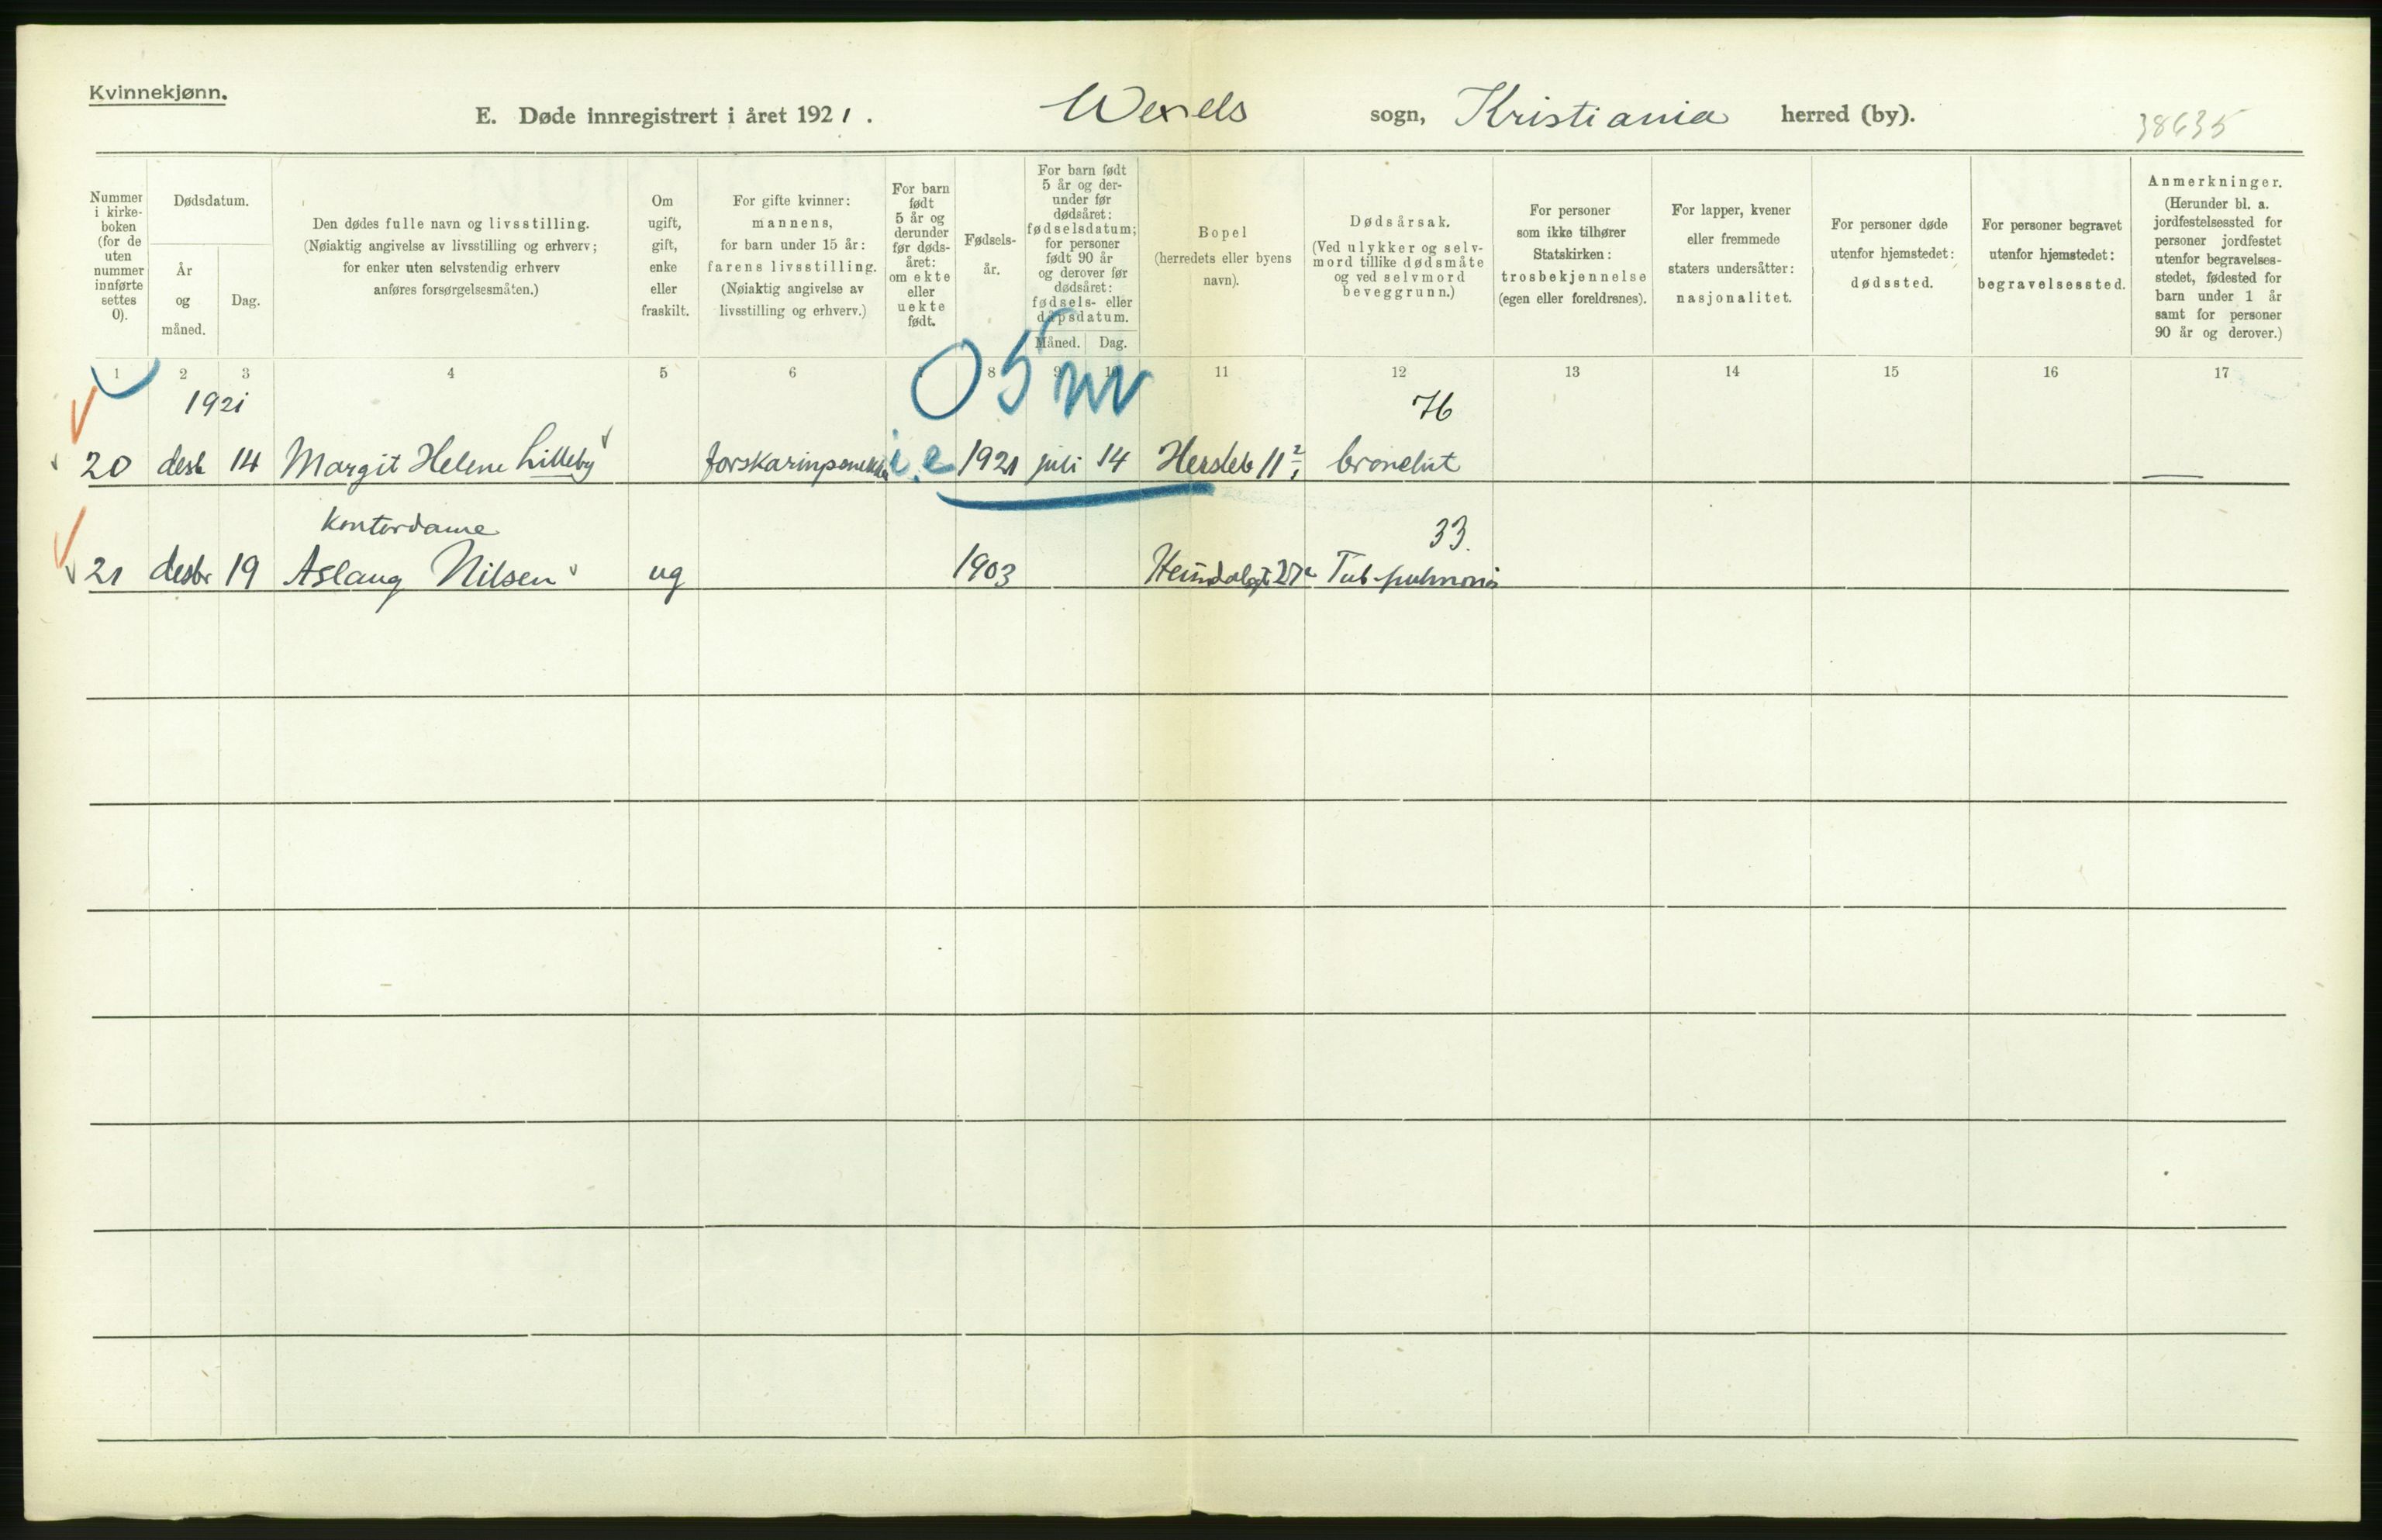 Kvinnekjønn.
E. Døde innregistrert i året 1921. Wexels sogn, Kristiania herred (by).
38635
Nummer i kirke-boken (for de uten nummer innførte settes 0).
Dødsdatum.
År og måned.
Dag.
Den dødes fulle navn og livsstilling.
(Nøiaktig angivelse av livsstilling og erhverv;
for enker uten selvstendig erhverv
anføres forsørgelsesmåten.)
Om
ugift,
gift,
enke
eller
fraskilt.
For gifte kvinner:
mannens,
for barn under 15 år:
farens livsstilling.
(Nøiaktig angivelse av
livsstilling og erhverv.)
For barn
født
5 år og
derunder
før døds-
året:
om ekte
eller
uekte
født.
Fødsels-
år.
For barn født
5 år og der-
under før
dødsåret:
fødselsdatum;
for personer
født 90 år
og derover før
dødsåret:
fødsels- eller
dåpsdatum.
Måned. Dag.
Bopel
(herredets eller byens
navn).
Dødsårsak.
(Ved ulykker og selv-
mord tillike dødsmåte
og ved selvmord
beveggrunn.)
For personer
som ikke tilhører
Statskirken:
trosbekjennelse
(egen eller foreldrenes).
For lapper, kvener
eller fremmede
staters undersåtter:
nasjonalitet.
For personer døde
utenfor hjemstedet:
dødssted.
For personer begravet
utenfor hjemstedet:
begravelsessted.
Anmerkninger.
(Herunder bl. a.
jordfestelsessted for
personer jordfestet
utenfor begravelses-
stedet, fødested for
barn under 1 år
samt for personer
90 år og derover.)
1 2 3 4 5 6 8 9 10 11 12 13 14 15 16 17
1921 76
20 desb 14 Margit Helene Lilleby i.e 1921 juli 14 Hersleb 11 bronchit —
kontordame 33.
21 desbr 19 Aslaug Nilsen ug 1903 Heimdalsgt 27 Tub. pulmonis